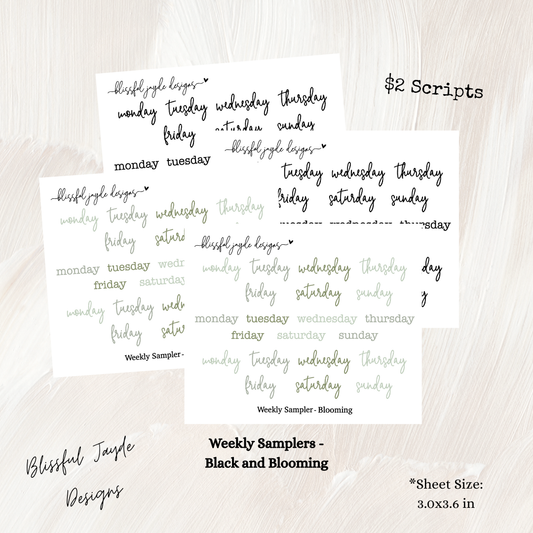 $2 Scripts
blissful jayde designs
monday tuesday wednesday thursday
friday saturday sunday
monday tuesday
blissful jayde designs
tuesday wednesday thursday
friday saturday sunday
tuesday wednesday thursday
blissful jayde designs
monday tuesday wednesday thursday
friday saturday
monday tuesday
friday saturday
monday tuesday
friday
Weekly Sampler -
blissful jayde designs
monday tuesday wednesday thursday
friday saturday sunday
monday tuesday wednesday thursday
friday saturday sunday
monday tuesday wednesday thursday
friday saturday sunday
Weekly Sampler - Blooming
Weekly Samplers -
Black and Blooming
Blissful Jayde
Designs
*Sheet Size:
3.0x3.6 in